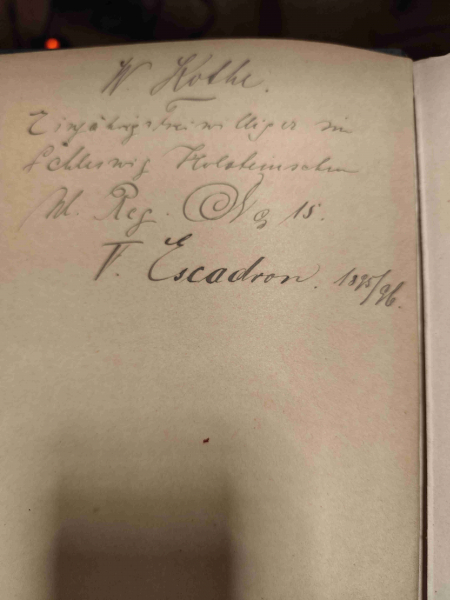 W. Kothe.
Einjährigfreiwilliger im
Schleswig Holsteinschen
Ul. Reg. No 15.
V. Escadron. 1895/96.